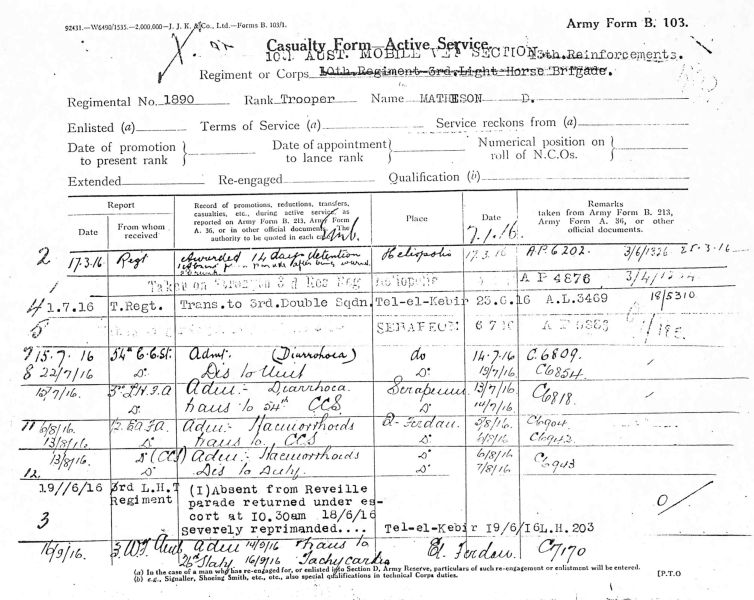 92431.—W6490/1535.—2,000,000—J. J. K. & Co., Ltd.—Forms B. 103/1.
Army Form B. 103.
Casualty Form—Active Service.
10.1 AUST. MOBILE VET SECTION 13th.Reinforcements.
Regiment or Corps 10th.Regiment-3rd.Light-Horse Brigade.
Regimental No. 1890 Rank Trooper Name MATHESON D.
Enlisted (a) Terms of Service (a) Service reckons from (a)
Date of promotion to present rank
Date of appointment to lance rank
Numerical position on roll of N.C.Os.
Extended Re-engaged Qualification (b)
Report
Date
From whom received
Record of promotions, reductions, transfers, casualties, etc., during active service, as reported on Army Form B. 213, Army Form A. 36, or in other official documents. The authority to be quoted in each case.
Place
Date
Remarks
taken from Army Form B. 213, Army Form A. 36, or other official documents.
Emb. 7.1.16.
2 17.3.16 Regt Awarded 14 days detention Heliopolis 17.3.16 A.P.6202. 25.3.16
1 Taken on Heliopolis A P 4876
4 1.7.16 T.Regt. Trans.to 3rd.Double Sqdn. Tel-el-Kebir 23.6.16 A.L.3469 18/5310
5 SERAPEUM 6 7 16
7 15.7.16 54th C.C.St. Admt. (Diarrohoea) do 14.7.16 C.6809.
8 22/7/16 Do Dis to Unit Do 19/7/16 C6854
15/7/16 3rd L.H.F.A Adm:- Diarrhoea Serapeum 13/7/16 C6818.
Do trans to 54th CCS. Do 14/7/16
11 6/8/16 Adm:- Haemorrhoids El-Ferdan 5/8/16 C6904
13/8/16 Do trans to CCS Do C6942
13/8/16. Do (CCS) Adm:- Haemorrhoids Do 6/8/16 C6943
12 Do Dis to Duty. Do 7/8/16
19//6/16 3rd L.H.T Regiment (I)Absent from Reveille parade returned under escort at 10.30am 18/6/16 severely reprimanded.... Tel-el-Kebir 19/6/16 L.H.203
3
16/9/16. Adm 14/9/16 trans to El Ferdan. C7170
26th Staty 16/9/16 Tachycardia
(a) In the case of a man who has re-engaged for, or enlisted into Section D, Army Reserve, particulars of such re-engagement or enlistment will be entered.
(b) e.g., Signaller, Shoeing Smith, etc., etc., also special qualifications in technical Corps duties.
[P.T.O